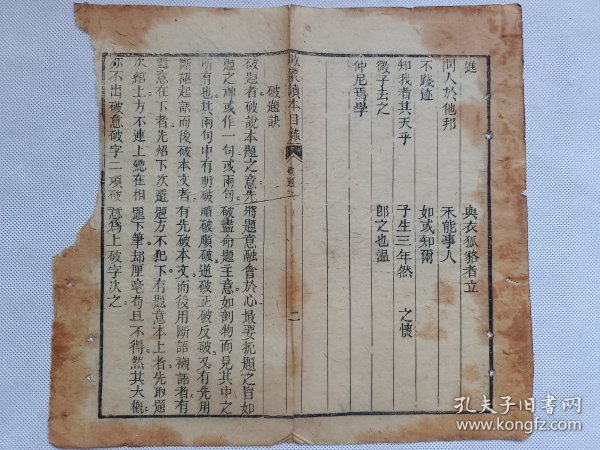 進
問人於他邦
不踐迹
知我者其天乎
微子去之
仲尼焉學
與衣狐貉者立
未能事人
如或知爾
子生三年然 之懷
即之也溫
啟蒙讀本目錄 破題 二
破題訣
破題者破說本題之意先將題意融會於心最要扼題之旨如
題之神或作一句或兩句破盡命題主意如剖物而見其中之
所有也其兩句中有明破暗破順破逆破正破反破又有先用
斷語起語而後破本文者有先破本文而後用斷語襯語者有
題意在下者先紹下次還題方不犯下有題意本上者先取題
次綰上方不連上總在相題下筆却厘毫苟且不得然其大槪
亦不出破意破字二項破意爲上破字次之
孔夫子旧书网
www.kongfz.com